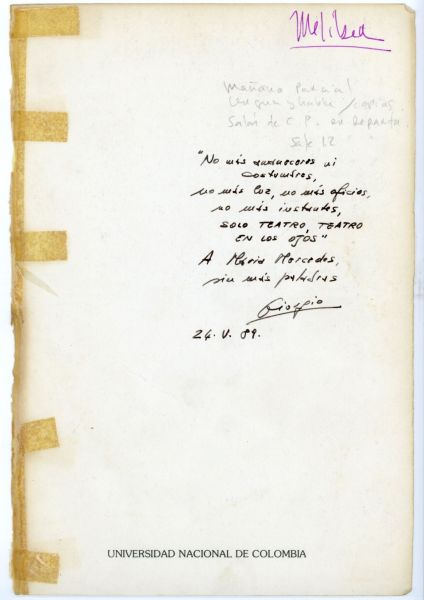 Melibea
Mañana Parcial
lengua y habla / copias
Salón de C.P. en
"No más amaneceres ni
costumbres,
no más luz, no más oficios,
no más instantes,
SOLO TEATRO, TEATRO
EN LOS OJOS"
A María Mercedes,
sin más palabras
Giorgio
24.V.89.
UNIVERSIDAD NACIONAL DE COLOMBIA